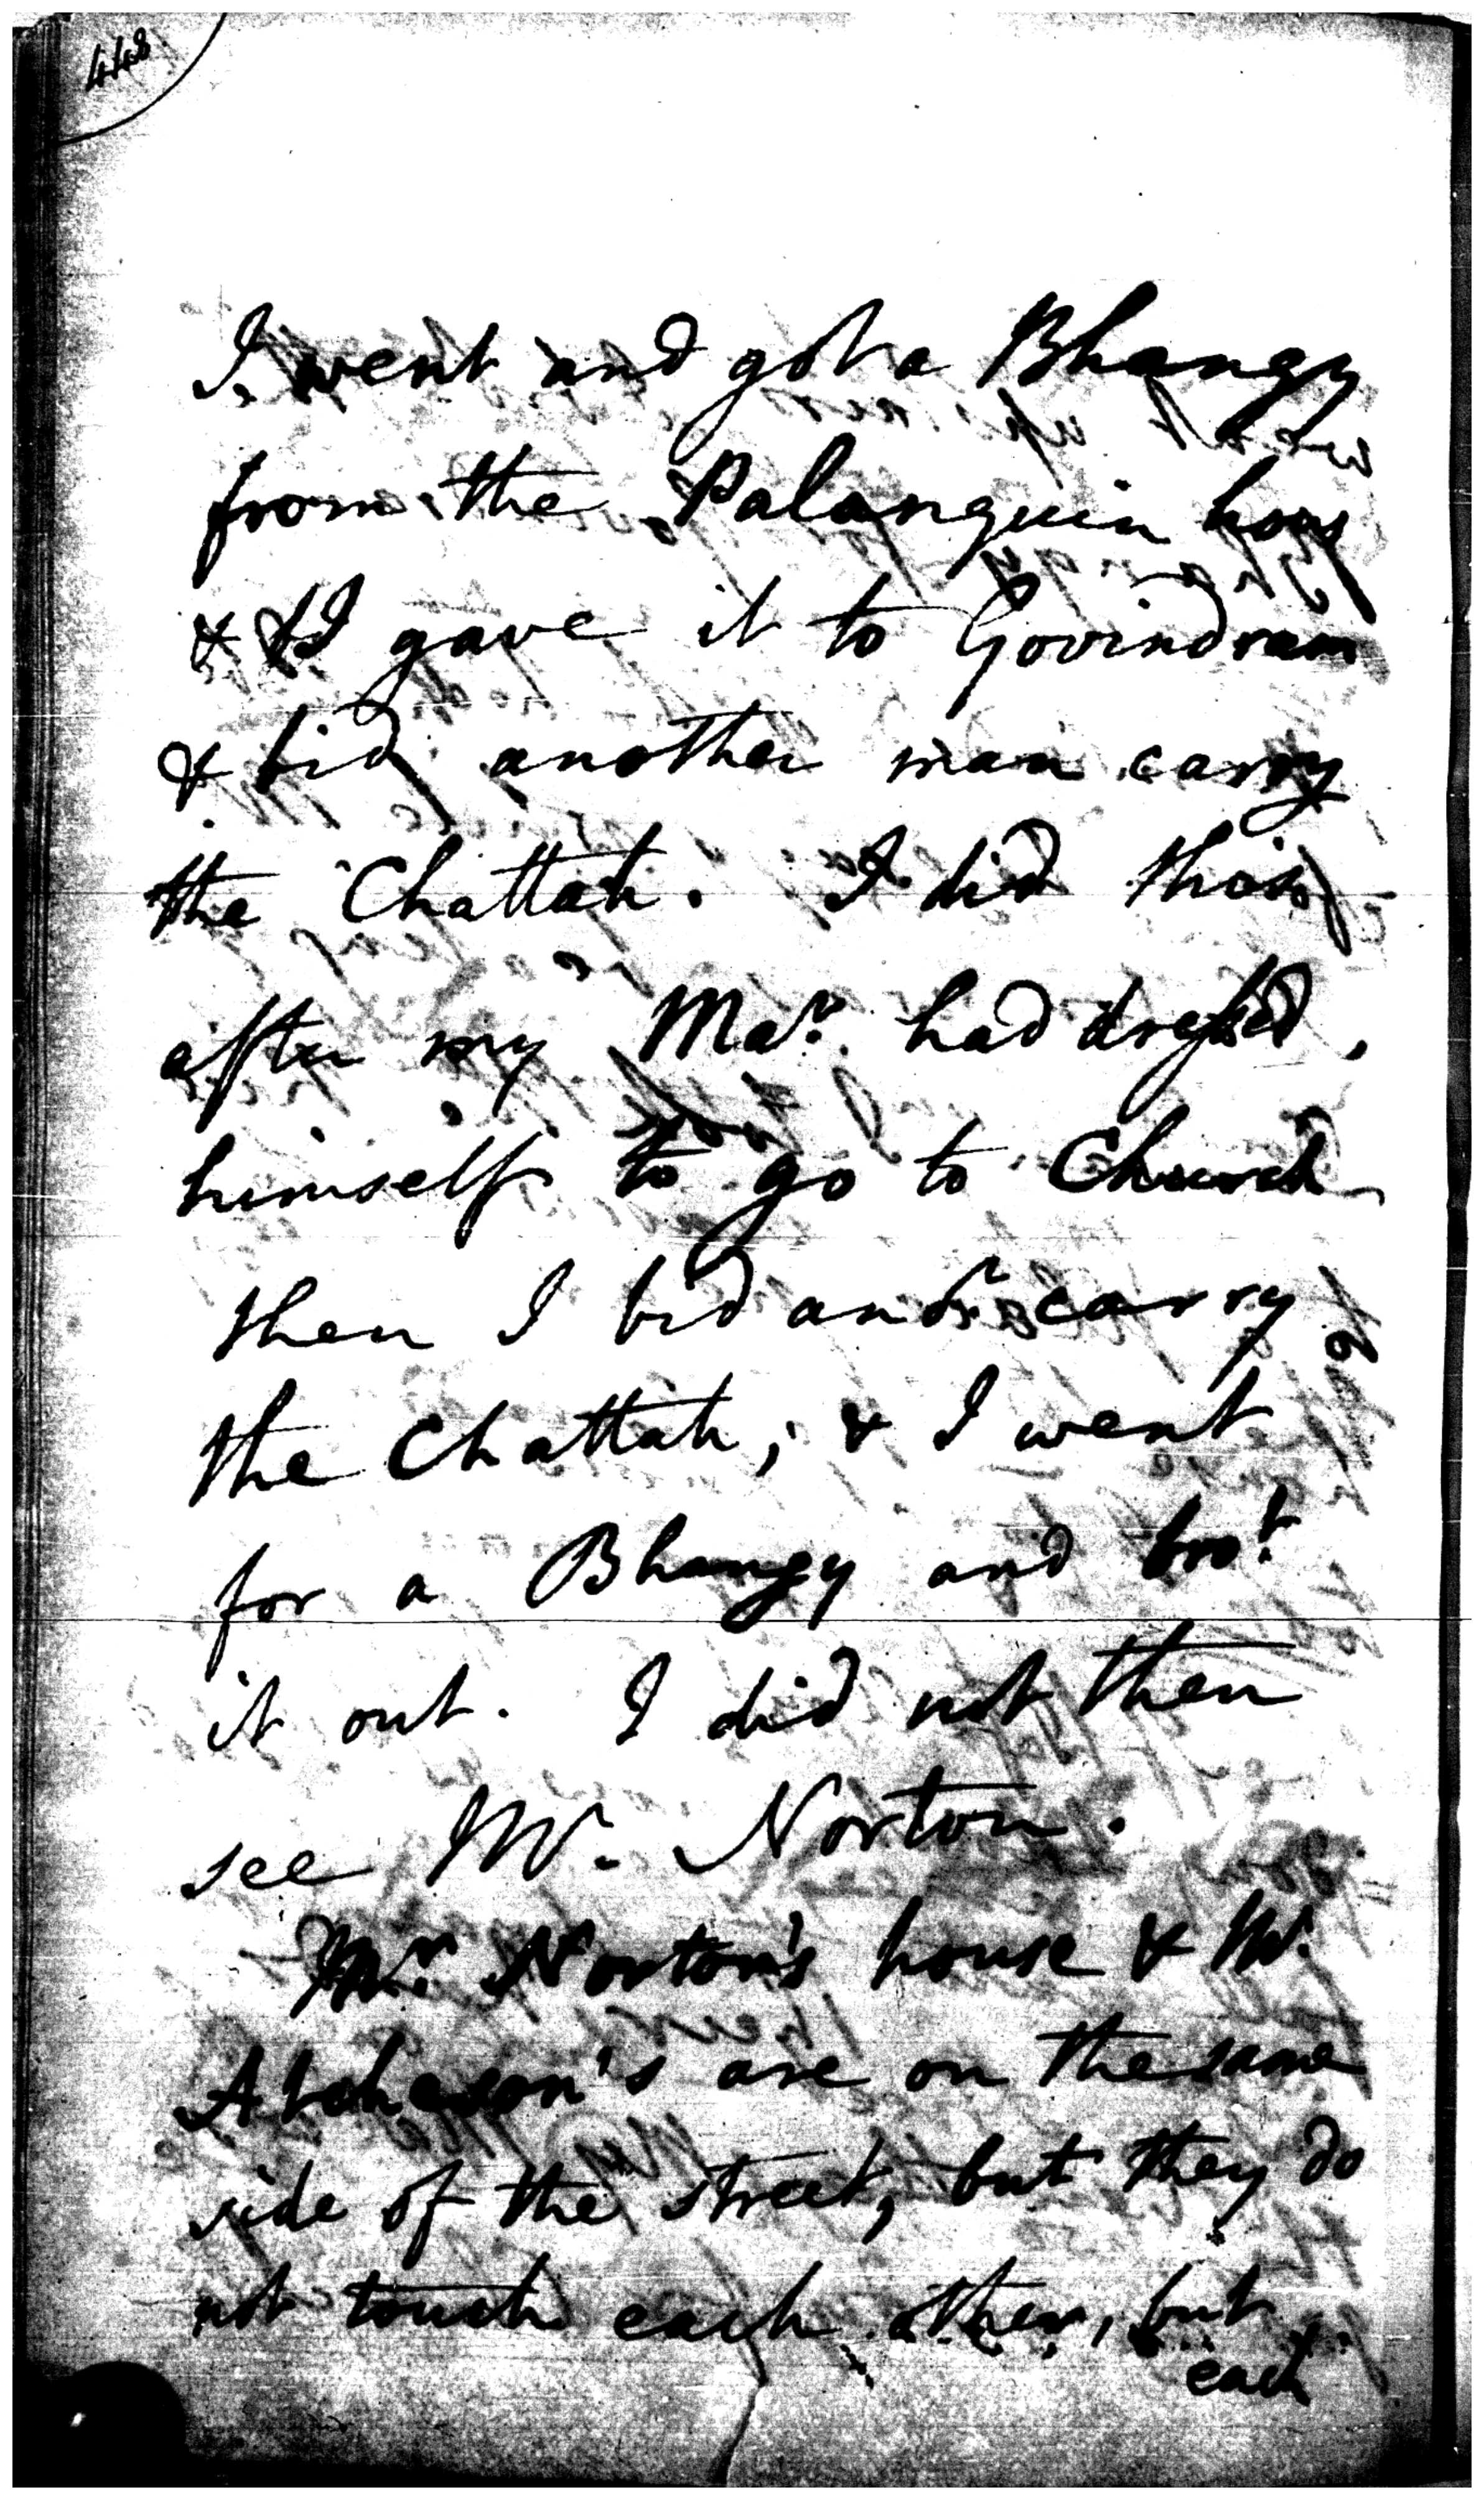 448
I went and got a Bhangy
from the Palanquin boys
& I gave it to Govindram
& bid another man carry
the Chattah. I did this
after my Mar. had dressed,
himself to go to Church
then I bid anor. carry
the Chattah, & I went
for a Bhangy and brot.
it out. I did not then
see Mr. Norton.
Mr. Norton's house & Mr.
Atcheson's are on the same
side of the street, but they do
not touch each other, but
each